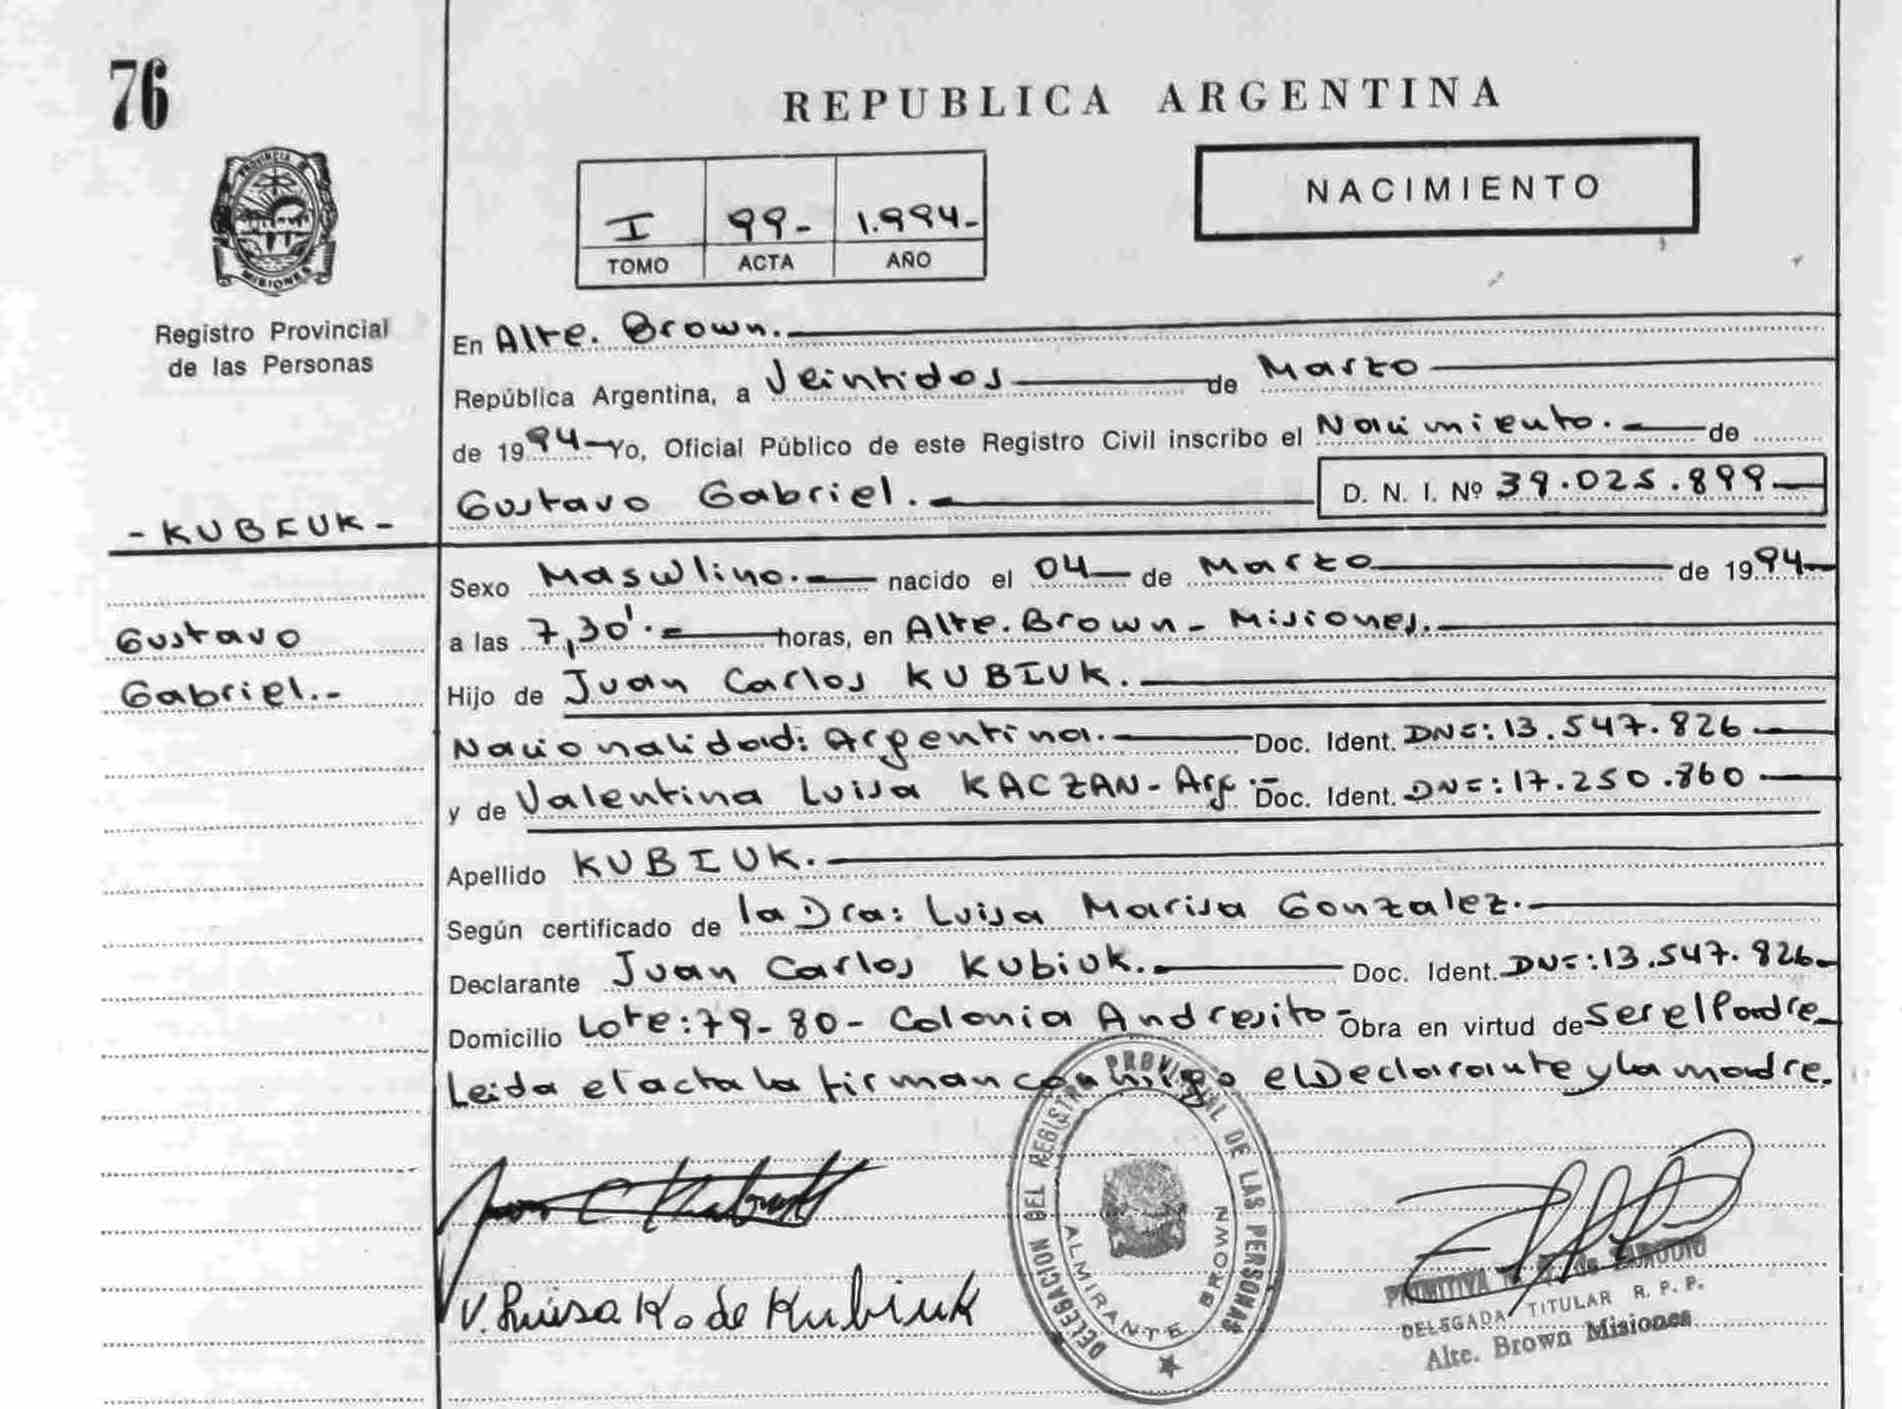 76
REPUBLICA ARGENTINA
NACIMIENTO
I 99- 1.994-
TOMO ACTA AÑO
PROVINCIA DE
MISIONES
Registro Provincial
de las Personas
- KUBIUK -
Gustavo
Gabriel.-
En Alte. Brown.
República Argentina, a Veintidos de Marzo
de 1994 Yo, Oficial Público de este Registro Civil inscribo el Nacimiento. de
Gustavo Gabriel. D. N. I. Nº 39.025.899
Sexo Masculino. nacido el 04 de Marzo de 1994
a las 7,30'. horas, en Alte. Brown - Misiones.
Hijo de Juan Carlos KUBIUK.
Nacionalidad: Argentina. Doc. Ident. DNI: 13.547.826
y de Valentina Luisa KACZAN - Arg.- Doc. Ident. DNI: 17.250.860
Apellido KUBIUK.
Según certificado de la Dra: Luisa Marisa Gonzalez.
Declarante Juan Carlos Kubiuk. Doc. Ident. DNI: 13.547.826
Domicilio Lote: 79-80- Colonia Andresito- Obra en virtud de ser el Padre
Leida el acta la firman conmigo el Declarante y la madre.
V. Luisa K. de Kubiuk
DELEGACION DEL REGISTRO PROVINCIAL DE LAS PERSONAS
ALMIRANTE BROWN
PRIMITIVA
DELEGADA TITULAR R. P. P.
Alte. Brown Misiones